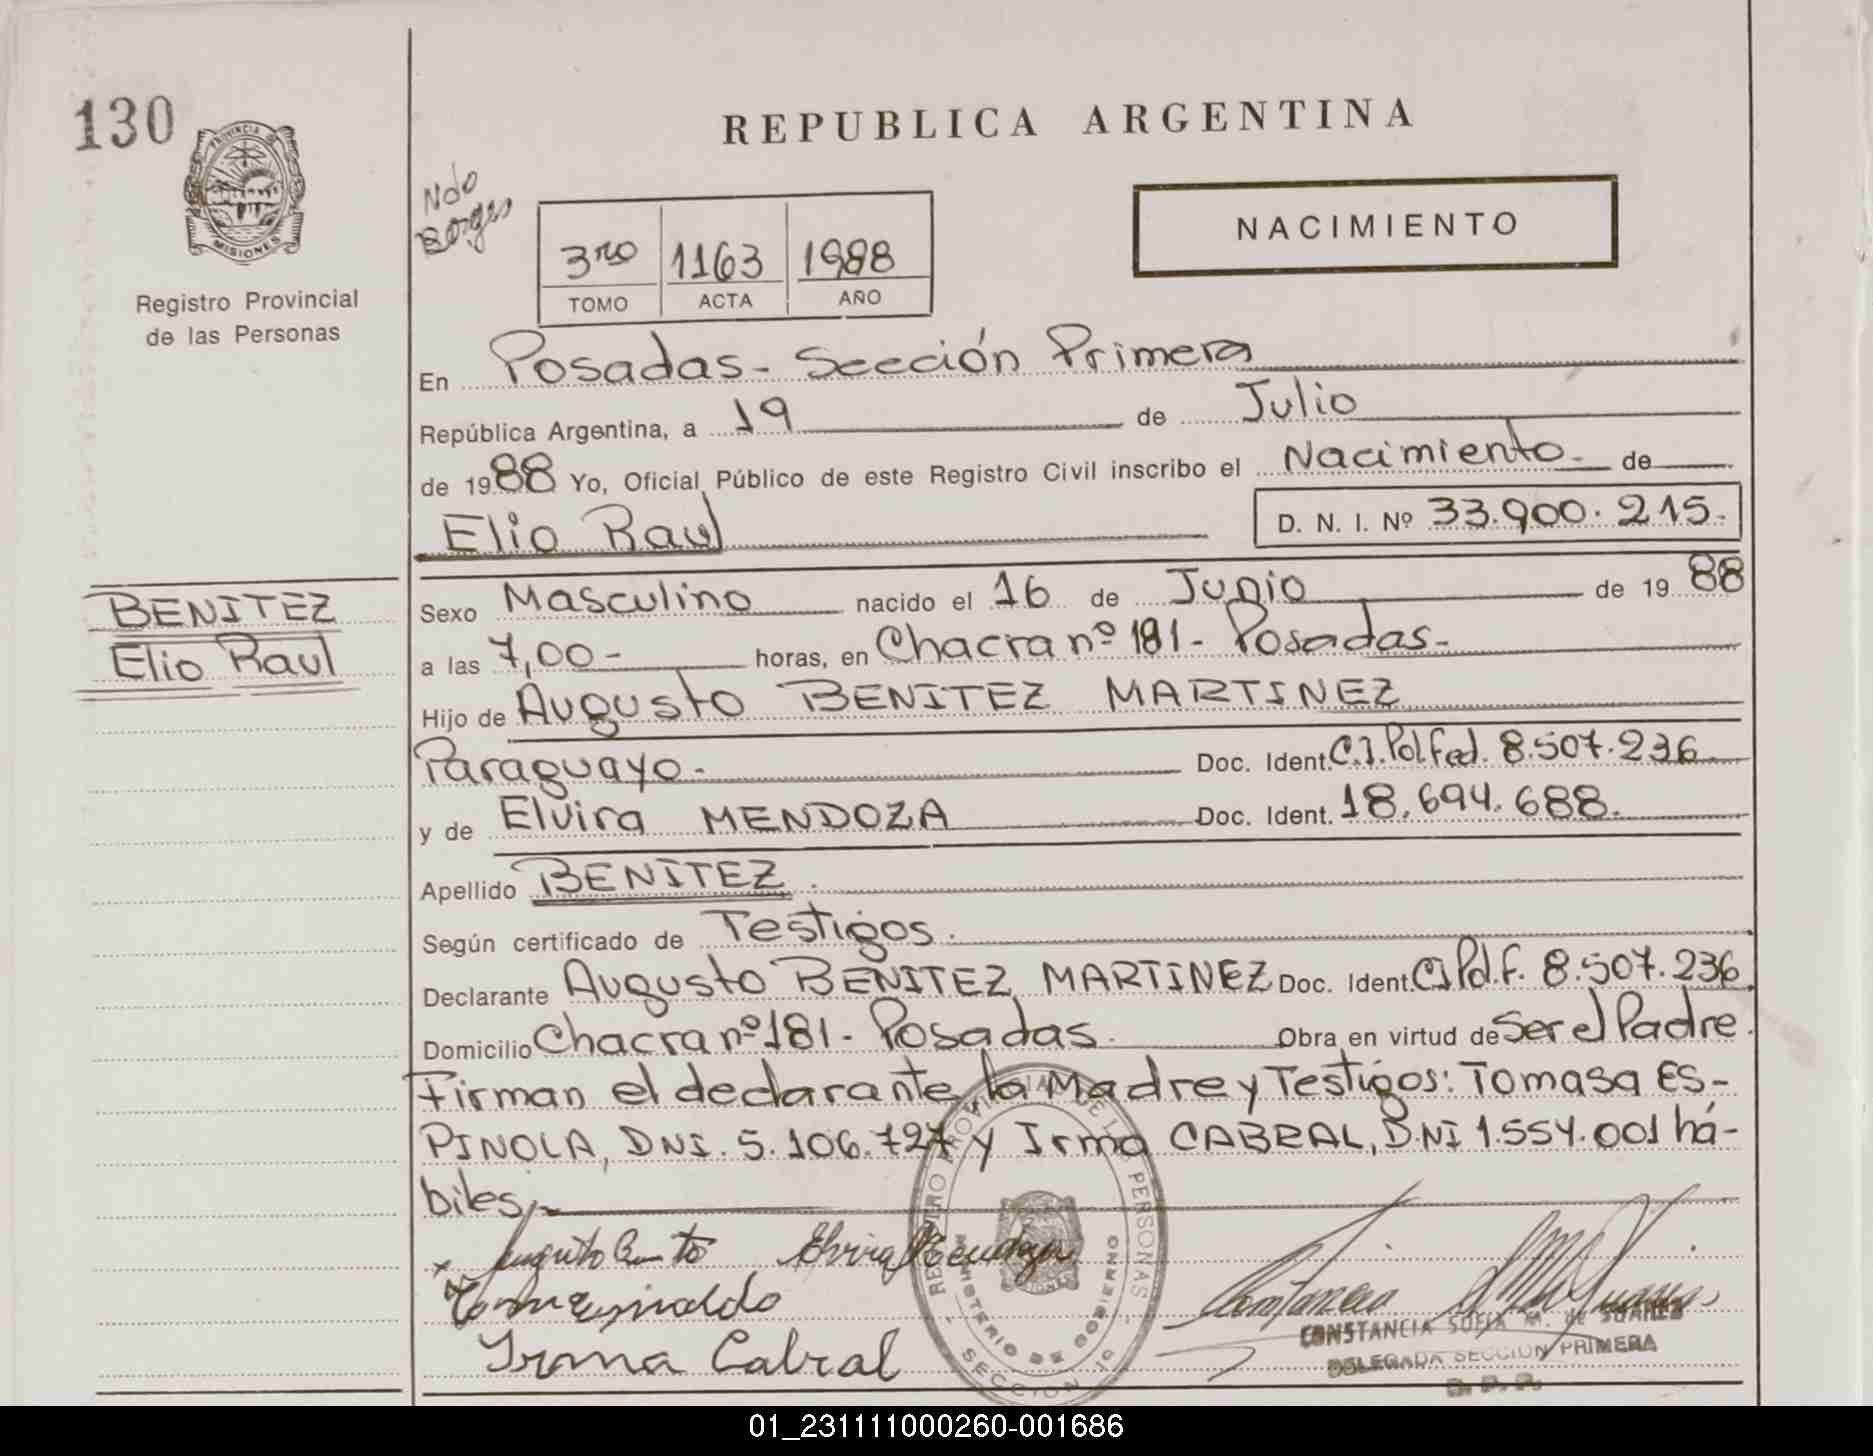 130
PROVINCIA DE
MISIONES
Registro Provincial
de las Personas
BENITEZ
Elio Raul
REPUBLICA ARGENTINA
Ndo
NACIMIENTO
3ro 1163 1988
TOMO ACTA AÑO
En Posadas - Sección Primera
República Argentina, a 19 de Julio
de 1988 Yo, Oficial Público de este Registro Civil inscribo el Nacimiento. de
Elio Raul D. N. I. Nº 33.900.215.
Sexo Masculino nacido el 16 de Junio de 1988
a las 7,00 - horas, en Chacra nº 181 - Posadas -
Hijo de Augusto BENITEZ MARTINEZ
Paraguayo - Doc. Ident. C.I. Pol Fed. 8.507.236
y de Elvira MENDOZA Doc. Ident. 18.694.688.
Apellido BENITEZ.
Según certificado de Testigos.
Declarante Augusto BENITEZ MARTINEZ Doc. Ident. CI Pol. F. 8.507.236
Domicilio Chacra nº 181 - Posadas. Obra en virtud de Ser el Padre.
Firman el declarante, la Madre y Testigos: Tomasa ES-
PINOLA, DNI. 5.106.727 y Irma CABRAL, D.NI 1.554.001 há-
biles,-
Elvira Mendoza
Irma Cabral
REGISTRO PROVINCIAL DE LAS PERSONAS
MINISTERIO DE GOBIERNO
SECCION
CONSTANCIA SOFIA M. de SUAREZ
DELEGADA SECCION PRIMERA
R. P. P.
01_231111000260-001686